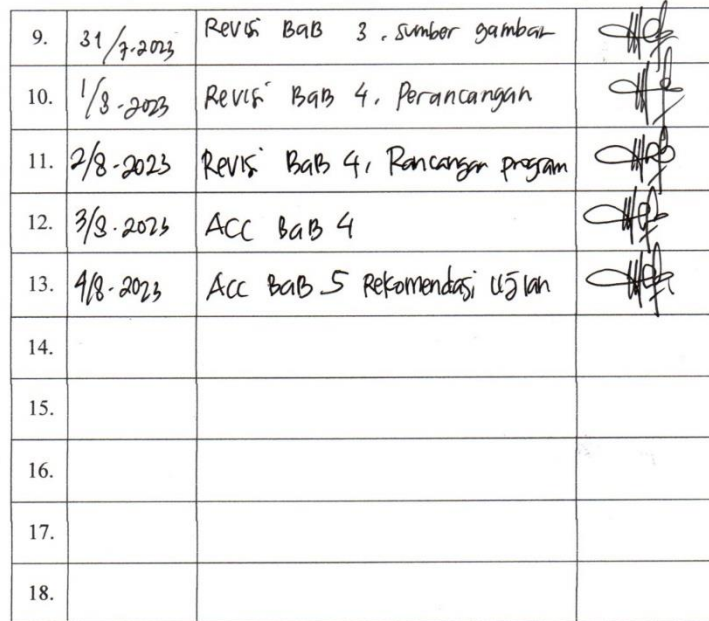 9. 31/7-2023 Revisi BaB 3. sumber gambar
10. 1/8-2023 Revisi BaB 4. Perancangan
11. 2/8-2023 Revisi BaB 4, Rancangan program
12. 3/8-2023 ACC BaB 4
13. 4/8-2023 Acc BaB 5 Rekomendasi Ujian
14.
15.
16.
17.
18.